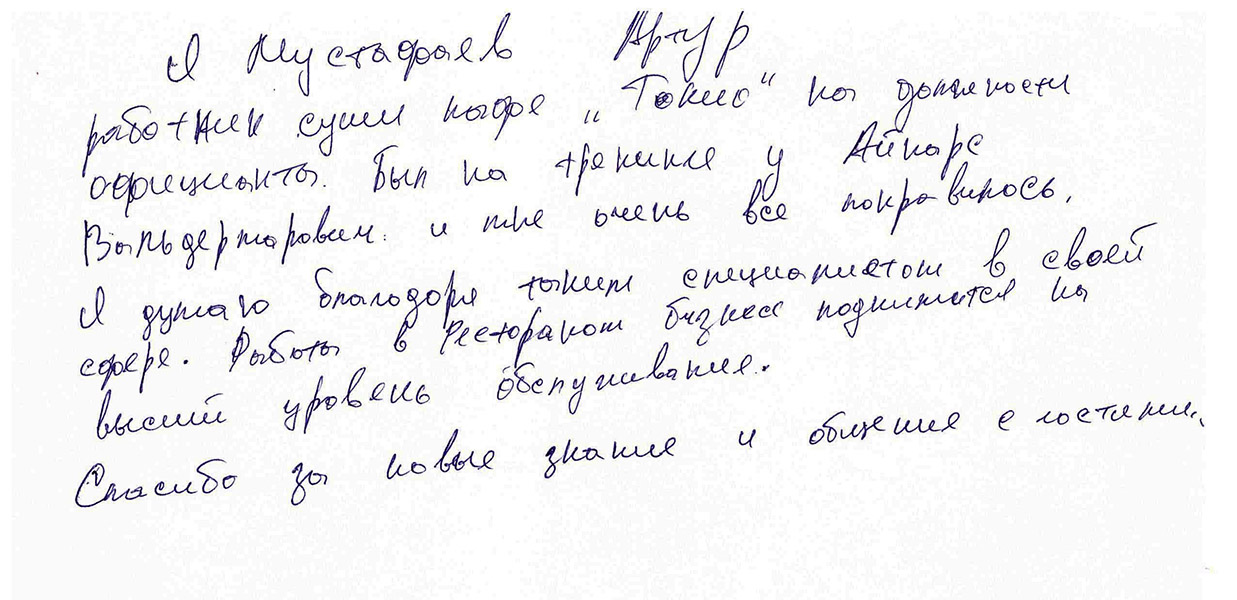 Я Мустафаев Артур
работник суши кафе „Токио" на должности
официанта. Был на тренинге у Айнаре
Вальдермаровим. и мне очень все понравилось.
Я думаю благодаря таким специалистом в своей
сфере. Работы в Рестораном бизнесе поднимится на
высший уровень обслуживания.
Спасибо за новые знания и общения с гостями.